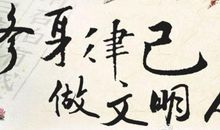 身律己
做文明